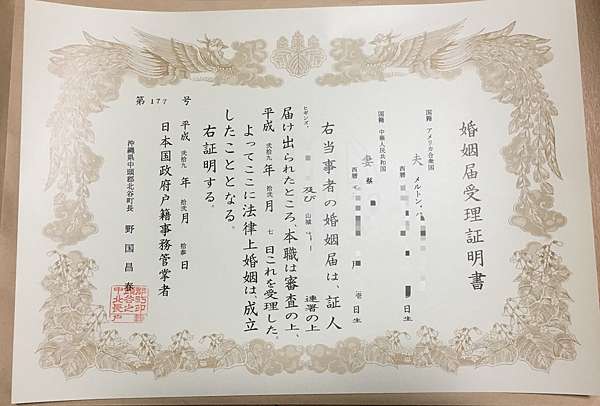 婚姻届受理証明書
国籍 アメリカ合衆国
夫 メルトン、
西暦 日生
国籍 中華人民共和国
妻 蔡
西暦 壱日生
右当事者の婚姻届は、証人
ヒギンズ、 及び 山城 連署の上
届け出られたところ、本職は審査の上、
平成 弐拾九 年 拾弐 月 七 日これを受理した。
よってここに法律上婚姻は、成立
したこととなる。
右証明する。
第177号
平成 弐拾九 年 拾弐 月 拾参 日
日本国政府戸籍事務管掌者
沖縄県中頭郡北谷町長 野国昌春